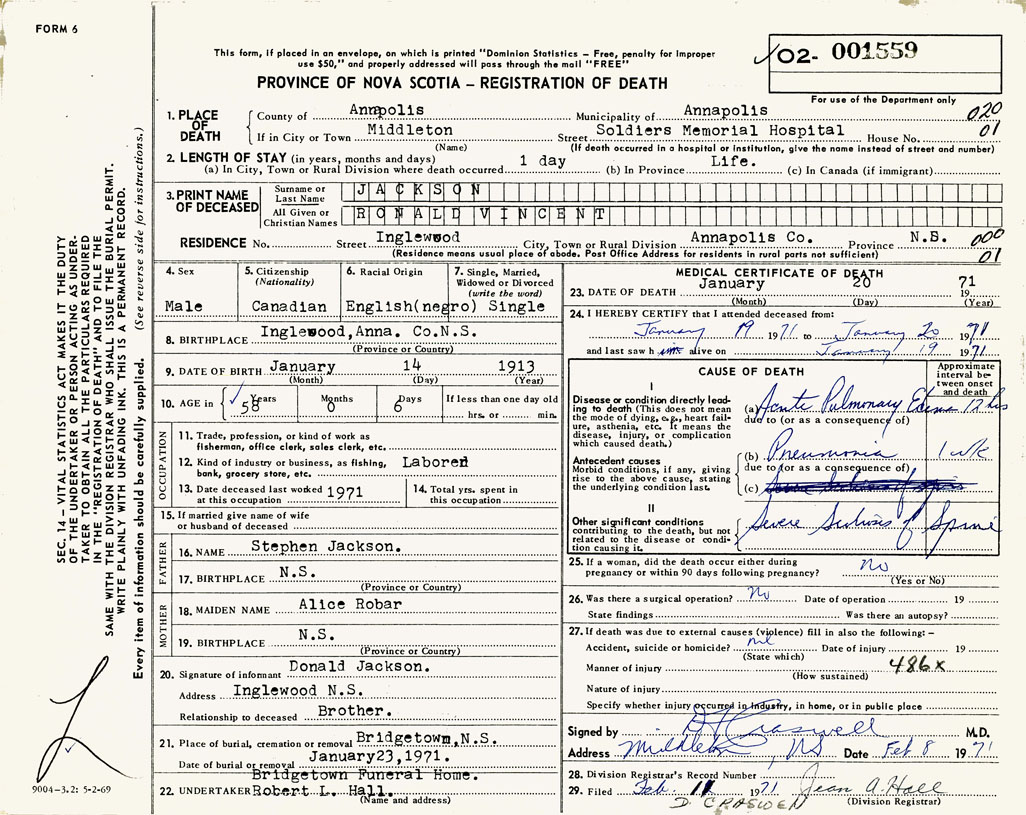 FORM 6
This form, if placed in an envelope, on which is printed "Dominion Statistics – Free, penalty for improper
use $50," and properly addressed will pass through the mail "FREE"
O2- 001559
PROVINCE OF NOVA SCOTIA – REGISTRATION OF DEATH
For use of the Department only
1. PLACE OF DEATH
County of Annapolis Municipality of Annapolis 020
If in City or Town Middleton Street Soldiers Memorial Hospital House No. 01
(Name) (If death occurred in a hospital or institution, give the name instead of street and number)
2. LENGTH OF STAY (in years, months and days)
(a) In City, Town or Rural Division where death occurred 1 day (b) In Province Life. (c) In Canada (if immigrant)
3. PRINT NAME OF DECEASED
Surname or Last Name JACKSON
All Given or Christian Names RONALD VINCENT
RESIDENCE No. Street Inglewood City, Town or Rural Division Annapolis Co. Province N.S. 000
(Residence means usual place of abode. Post Office Address for residents in rural parts not sufficient) 01
4. Sex
Male
5. Citizenship
(Nationality)
Canadian
6. Racial Origin
English(negro)
7. Single, Married,
Widowed or Divorced
(write the word)
Single
8. BIRTHPLACE Inglewood,Anna. Co.N.S.
(Province or Country)
9. DATE OF BIRTH January 14 1913
(Month) (Day) (Year)
10. AGE in Years 58 Months 0 Days 6 If less than one day old
hrs. or min.
OCCUPATION
11. Trade, profession, or kind of work as
fisherman, office clerk, sales clerk, etc.
12. Kind of industry or business, as fishing, Laborer
bank, grocery store, etc.
13. Date deceased last worked 1971
at this occupation
14. Total yrs. spent in
this occupation
15. If married give name of wife
or husband of deceased
FATHER
16. NAME Stephen Jackson.
17. BIRTHPLACE N.S.
(Province or Country)
MOTHER
18. MAIDEN NAME Alice Robar
19. BIRTHPLACE N.S.
(Province or Country)
20. Signature of informant Donald Jackson.
Address Inglewood N.S.
Relationship to deceased Brother.
21. Place of burial, cremation or removal Bridgetown,N.S.
Date of burial or removal January23,1971.
Bridgetown Funeral Home.
22. UNDERTAKER Robert L. Hall.
(Name and address)
MEDICAL CERTIFICATE OF DEATH
23. DATE OF DEATH January 20 1971
(Month) (Day) (Year)
24. I HEREBY CERTIFY that I attended deceased from:
January 19 1971 to January 20 1971
and last saw h im alive on January 19 1971
CAUSE OF DEATH
Approximate
interval be-
tween onset
and death
I
Disease or condition directly lead-
ing to death (This does not mean
the mode of dying, e.g., heart fail-
ure, asthenia, etc. It means the
disease, injury, or complication
which caused death.)
(a) Acute Pulmonary Edema 12 hrs
due to (or as a consequence of)
Antecedent causes
Morbid conditions, if any, giving
rise to the above cause, stating
the underlying condition last.
(b) Pneumonia 1 wk
due to (or as a consequence of)
(c)
II
Other significant conditions
contributing to the death, but not
related to the disease or condi-
tion causing it.
Severe Scoliosis of Spine
25. If a woman, did the death occur either during
pregnancy or within 90 days following pregnancy? no
(Yes or No)
26. Was there a surgical operation? no Date of operation 19
State findings Was there an autopsy?
27. If death was due to external causes (violence) fill in also the following: –
Accident, suicide or homicide? nil Date of injury 19
(State which)
Manner of injury 486x
(How sustained)
Nature of injury
Specify whether injury occurred in industry, in home, or in public place
Signed by D Craswell M.D.
Address Middleton, NS Date Feb 8 1971
28. Division Registrar's Record Number
29. Filed Feb. 11 1971 Jean A. Hall
D. CRASWELL (Division Registrar)
SEC. 14 – VITAL STATISTICS ACT MAKES IT THE DUTY
OF THE UNDERTAKER OR PERSON ACTING AS UNDER-
TAKER TO OBTAIN ALL THE PARTICULARS REQUIRED
IN THE "REGISTRATION OF DEATH" AND TO FILE THE
SAME WITH THE DIVISION REGISTRAR WHO SHALL ISSUE THE BURIAL PERMIT.
WRITE PLAINLY WITH UNFADING INK. THIS IS A PERMANENT RECORD.
Every item of information should be carefully supplied. (See reverse side for instructions.)
9004-3.2: 5-2-69